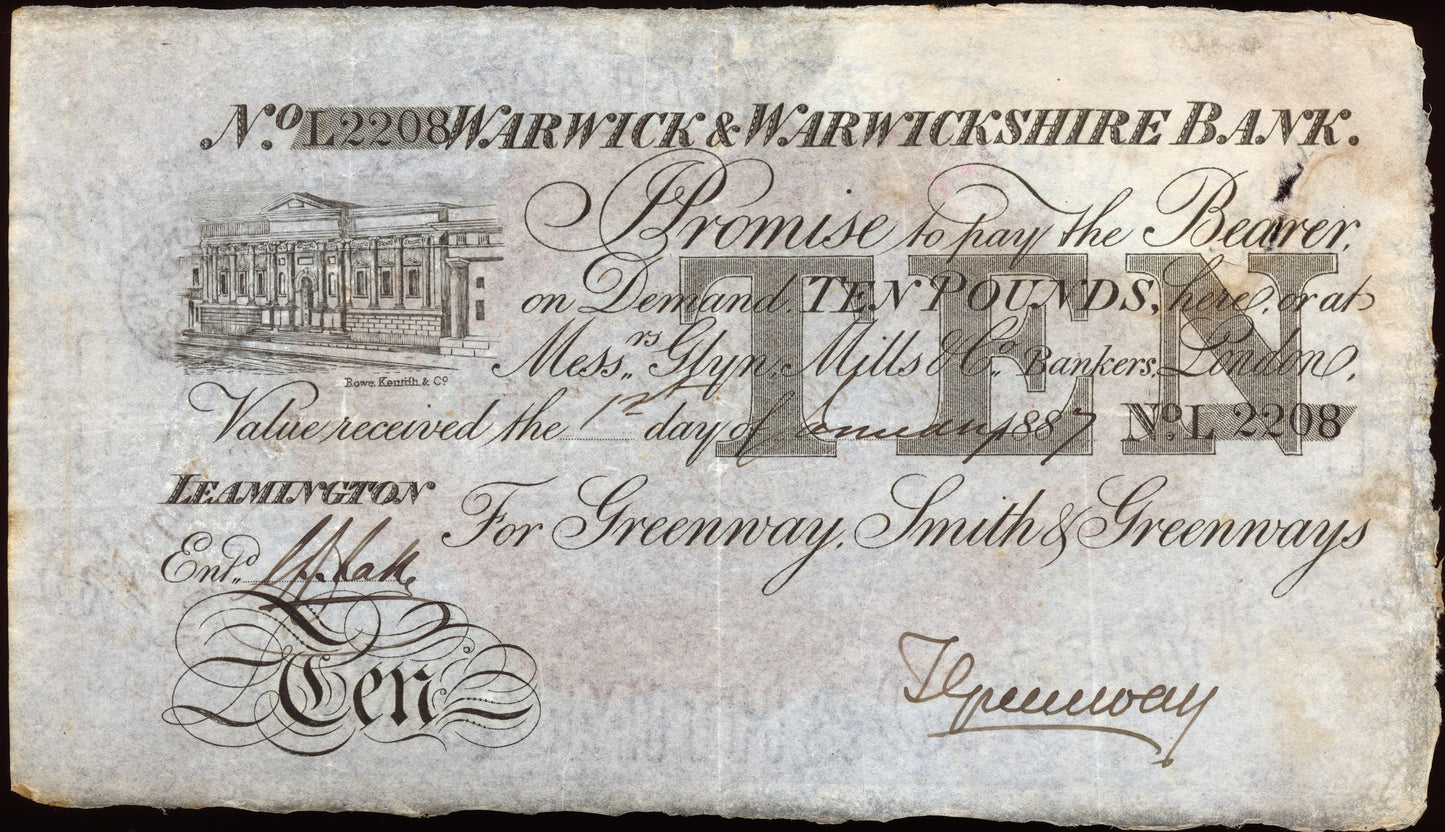 No. L2208 WARWICK & WARWICKSHIRE BANK.
I Promise to pay the Bearer,
on Demand, TEN POUNDS, here, or at
TEN
Messrs. Glyn, Mills & Co. Bankers, London,
Rowe, Kentish, & Co.
Value received the 1st day of January 1887 No. L 2208
LEAMINGTON For Greenway, Smith & Greenways
Entd.
Ten
Greenway